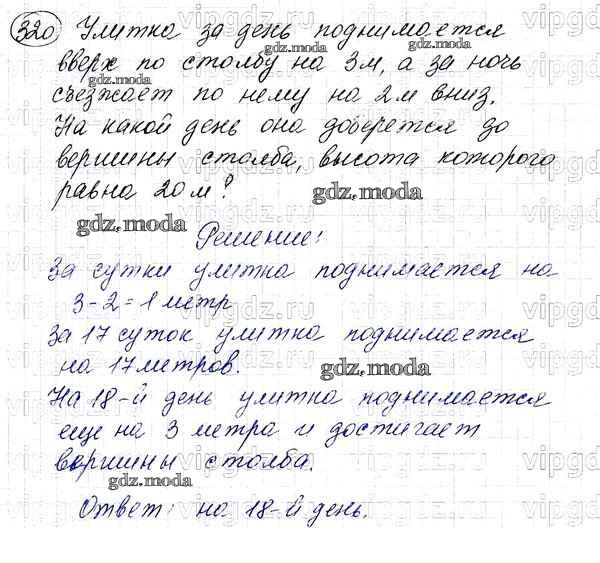 320 Улитка за день поднимается
вверх по столбу на 3м, а за ночь
съезжает по нему на 2м вниз.
На какой день она доберётся до
вершины столба, высота которого
равна 20м?
Решение:
За сутки улитка поднимается на
3-2=1 метр
За 17 суток улитка поднимается
на 17 метров.
На 18-й день улитка поднимается
еще на 3 метра и достигает
вершины столба.
Ответ: на 18-й день.
gdz.moda
gdz.moda
gdz.moda
gdz.moda
gdz.moda
gdz.moda
gdz.moda
vipgdz.ru